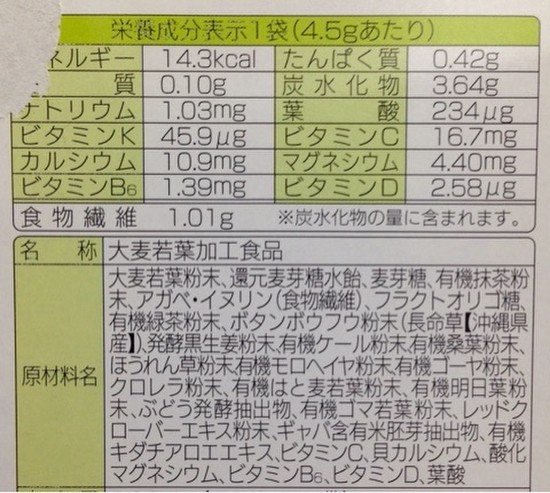 栄養成分表示1袋(4.5gあたり)
ネルギー 14.3kcal たんぱく質 0.42g
質 0.10g 炭水化物 3.64g
ナトリウム 1.03mg 葉酸 234μg
ビタミンK 45.9μg ビタミンC 16.7mg
カルシウム 10.9mg マグネシウム 4.40mg
ビタミンB₆ 1.39mg ビタミンD 2.58μg
食物繊維 1.01g ※炭水化物の量に含まれます。
名称 大麦若葉加工食品
原材料名
大麦若葉粉末、還元麦芽糖水飴、麦芽糖、有機抹茶粉
末、アガベ・イヌリン(食物繊維)、フラクトオリゴ糖、
有機緑茶粉末、ボタンボウフウ粉末(長命草【沖縄県
産】)、発酵黒生姜粉末、有機ケール粉末、有機桑葉粉末、
ほうれん草粉末、有機モロヘイヤ粉末、有機ゴーヤ粉末、
クロレラ粉末、有機はと麦若葉粉末、有機明日葉粉
末、ぶどう発酵抽出物、有機ゴマ若葉粉末、レッドク
ローバーエキス粉末、ギャバ含有米胚芽抽出物、有機
キダチアロエエキス、ビタミンC、貝カルシウム、酸化
マグネシウム、ビタミンB₆、ビタミンD、葉酸